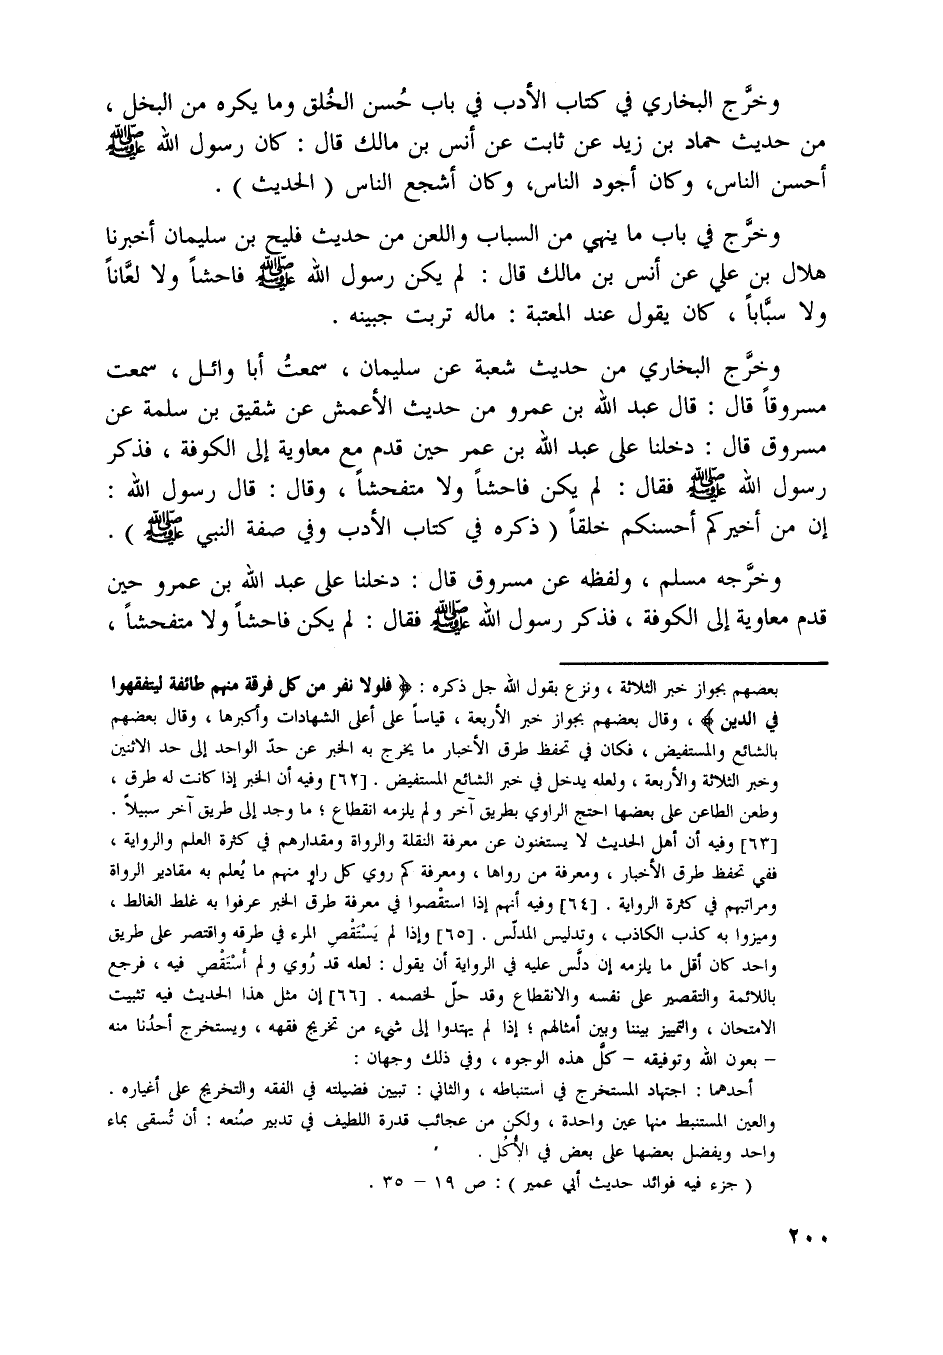 وخرَّج البخاري في كتاب الأدب في باب حُسن الخُلق وما يكره من البخل ،
من حديث حماد بن زيد عن ثابت عن أنس بن مالك قال : كان رسول الله ﷺ
أحسن الناس، وكان أجود الناس، وكان أشجع الناس ( الحديث ) .
وخرَّج في باب ما ينهي من السباب واللعن من حديث فليح بن سليمان أخبرنا
هلال بن علي عن أنس بن مالك قال : لم يكن رسول الله ﷺ فاحشاً ولا لعَّاناً
ولا سبَّاباً ، كان يقول عند المعتبة : ماله تربت جبينه .
وخرَّج البخاري من حديث شعبة عن سليمان ، سمعتُ أبا وائـل ، سمعت
مسروقاً قال : قال عبد الله بن عمرو من حديث الأعمش عن شقيق بن سلمة عن
مسروق قال : دخلنا على عبد الله بن عمر حين قدم مع معاوية إلى الكوفة ، فذكر
رسول الله ﷺ فقال : لم يكن فاحشاً ولا متفحشاً ، وقال : قال رسول الله :
إن من أخيركم أحسنكم خلقاً ( ذكره في كتاب الأدب وفي صفة النبي ﷺ ) .
وخرَّجه مسلم ، ولفظه عن مسروق قال : دخلنا على عبد الله بن عمرو حين
قدم معاوية إلى الكوفة ، فذكر رسول الله ﷺ فقال : لم يكن فاحشاً ولا متفحشاً ،
بعضهم بجواز خبر الثلاثة ، ونزع بقول الله جل ذكره : ﴿ فلولا نفر من كل فرقة منهم طائفة ليتفقهوا
في الدين ﴾ ، وقال بعضهم بجواز خبر الأربعة ، قياساً على أعلى الشهادات وأكبرها ، وقال بعضهم
بالشائع والمستفيض ، فكان في تحفظ طرق الأخبار ما يخرج به الخبر عن حدّ الواحد إلى حد الاثنين
وخبر الثلاثة والأربعة ، ولعله يدخل في خبر الشائع المستفيض . [٦٢] وفيه أن الخبر إذا كانت له طرق ،
وطعن الطاعن على بعضها احتج الراوي بطريق آخر ولم يلزمه انقطاع ؛ ما وجد إلى طريق آخر سبيلاً .
[٦٣] وفيه أن أهل الحديث لا يستغنون عن معرفة النقلة والرواة ومقدارهم في كثرة العلم والرواية ،
ففي تحفظ طرق الأخبار ، ومعرفة من رواها ، ومعرفة كم روي كل راوٍ منهم ما يُعلم به مقادير الرواة
ومراتبهم في كثرة الرواية . [٦٤] وفيه أنهم إذا استقْصوا في معرفة طرق الخبر عرفوا به غلط الغالط ،
وميزوا به كذب الكاذب ، وتدليس المدلّس . [٦٥] وإذا لم يَسْتَقْصِ المرء في طرقه واقتصر على طريق
واحد كان أقل ما يلزمه إن دلَّس عليه في الرواية أن يقول : لعله قد رُوي ولم أسْتَقْصِ فيه ، فرجع
باللائمة والتقصير على نفسه والانقطاع وقد حلّ لخصمه . [٦٦] إن مثل هذا الحديث فيه تثبيت
الامتحان ، والتمييز بيننا وبين أمثالهم ؛ إذا لم يهتدوا إلى شيء من تخريج فقهه ، ويستخرج أحدُنا منه
– بعون الله وتوفيقه – كلَّ هذه الوجوه ، وفي ذلك وجهان :
أحدهما : اجتهاد المستخرج في استنباطه ، والثاني : تبيين فضيلته في الفقه والتخريج على أغياره .
والعين المستنبط منها عين واحدة ، ولكن من عجائب قدرة اللطيف في تدبير صُنعه : أن تُسقى بماء
واحد ويفضل بعضها على بعض في الأُكُل .
( جزء فيه فوائد حديث أبي عمير ) : ص ١٩ – ٣٥ .
٢٠٠